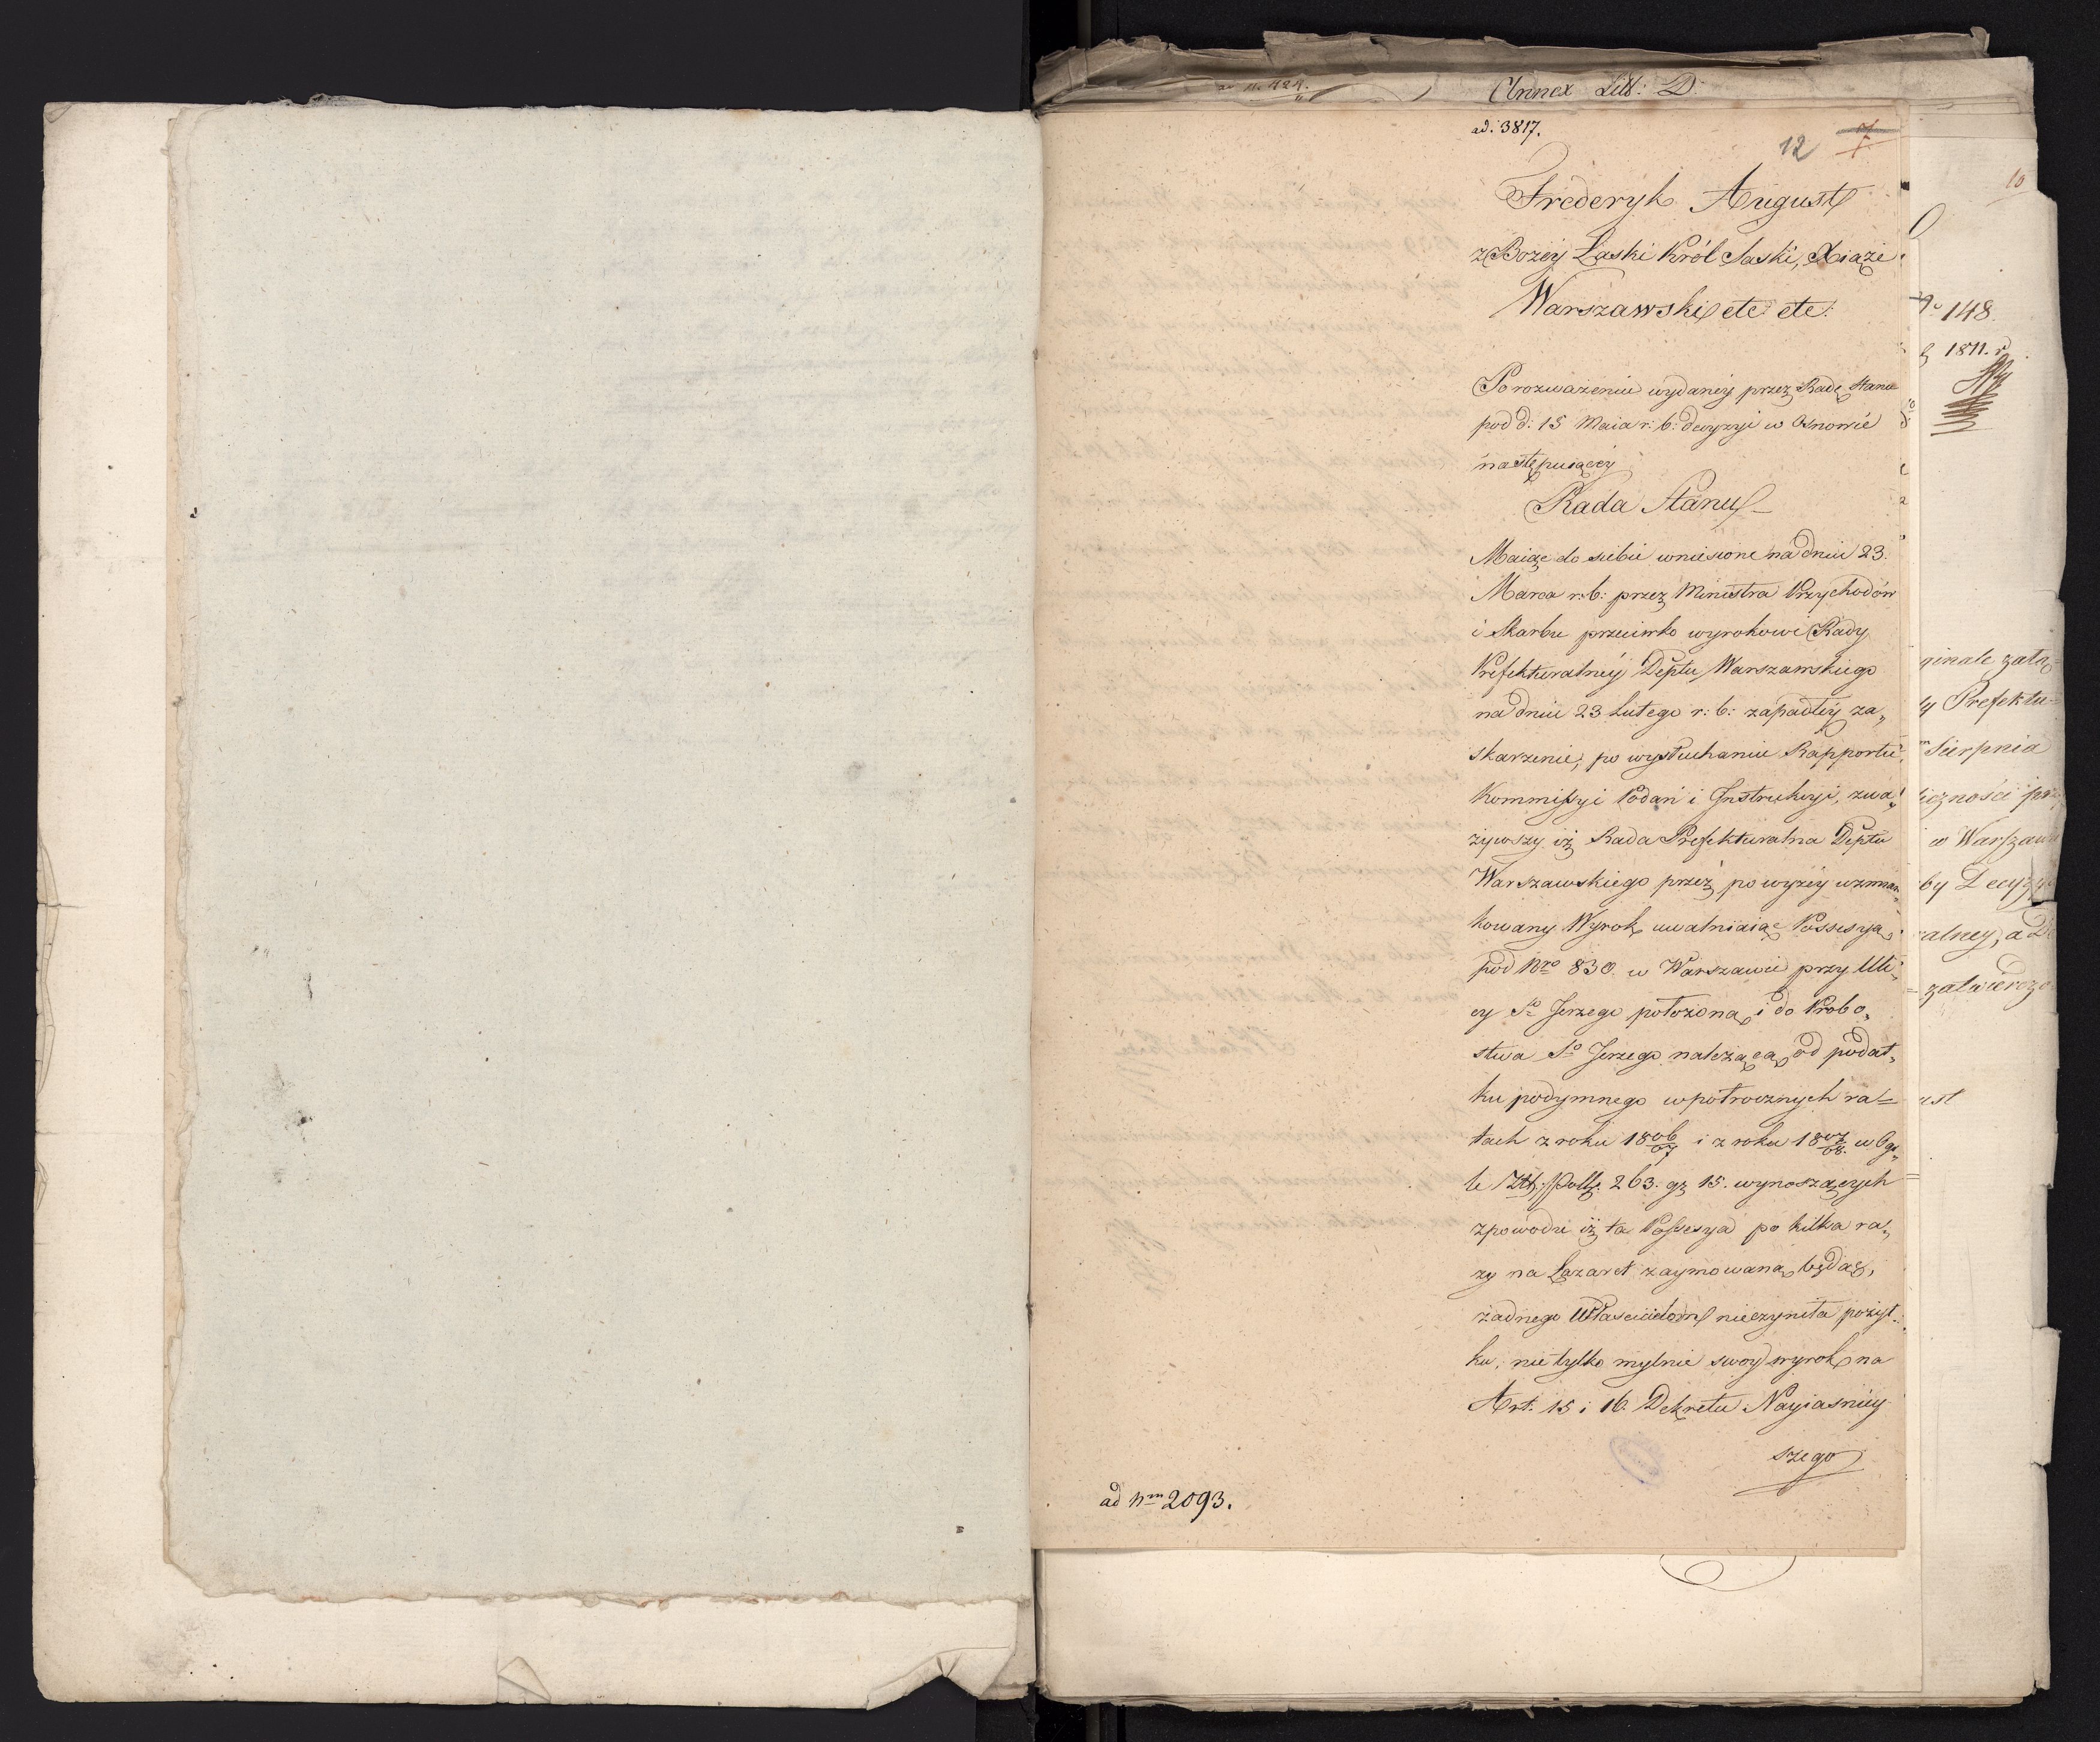 Annex Litt: D:
ad: 3817.
12 7
Frederyk August
z Bozéy Łaski Król Saski, Xiąże
Warszawski etc etc:
Po rozważeniu wydanéy przez Radę Stanu
pod d: 15 Maia r: b: decyzyi w Osnowie
następuiącéy
Rada Stanu
Maiąc do siebie wniesione na dniu 23.
Marca r: b: przez Ministra Przychodów
i Skarbu przeciwko wyrokowi Rady
Prefekturalnéy Deptu Warszawskiego
na dniu 23 Lutego r: b: zapadłéy za„
skarzenie, po wysłuchaniu Rapportu
Kommissyi Podań i Instrukcyi, zwa„
żywszy iż Rada Prefekturalna Deptu
Warszawskiego przez powyżéy wzmian„
kowany Wyrok uwalniaiąc Possesyą
pod Nro 830. w Warszawie przy Uli„
cy So Jerzego położoną i do Probo„
stwa So Jerzego należącą od podat„
ku podymnego w półrocznych ra=
tach z roku 1806/07 i z roku 1807/08. w Ogó„
le Złt: Poll: 263. gr 15. wynoszących
z powodu iż ta Possesya po kilka ra„
zy na Lazaret zaymowaną będąc,
żadnego Właścicielom nieczyniła pożyt„
ku, nie tylko mylnie swoy wyrok na
Art. 15 i 16. Dekretu Nayiaśniéy
szego
ad Nm 2093.
10
No 148.
1811. r
ginale zała„
y Prefektu=
Sierpnia
iczności prz
w Warszaw
by Decyzy
alney, a D
= zatwierdze
ust